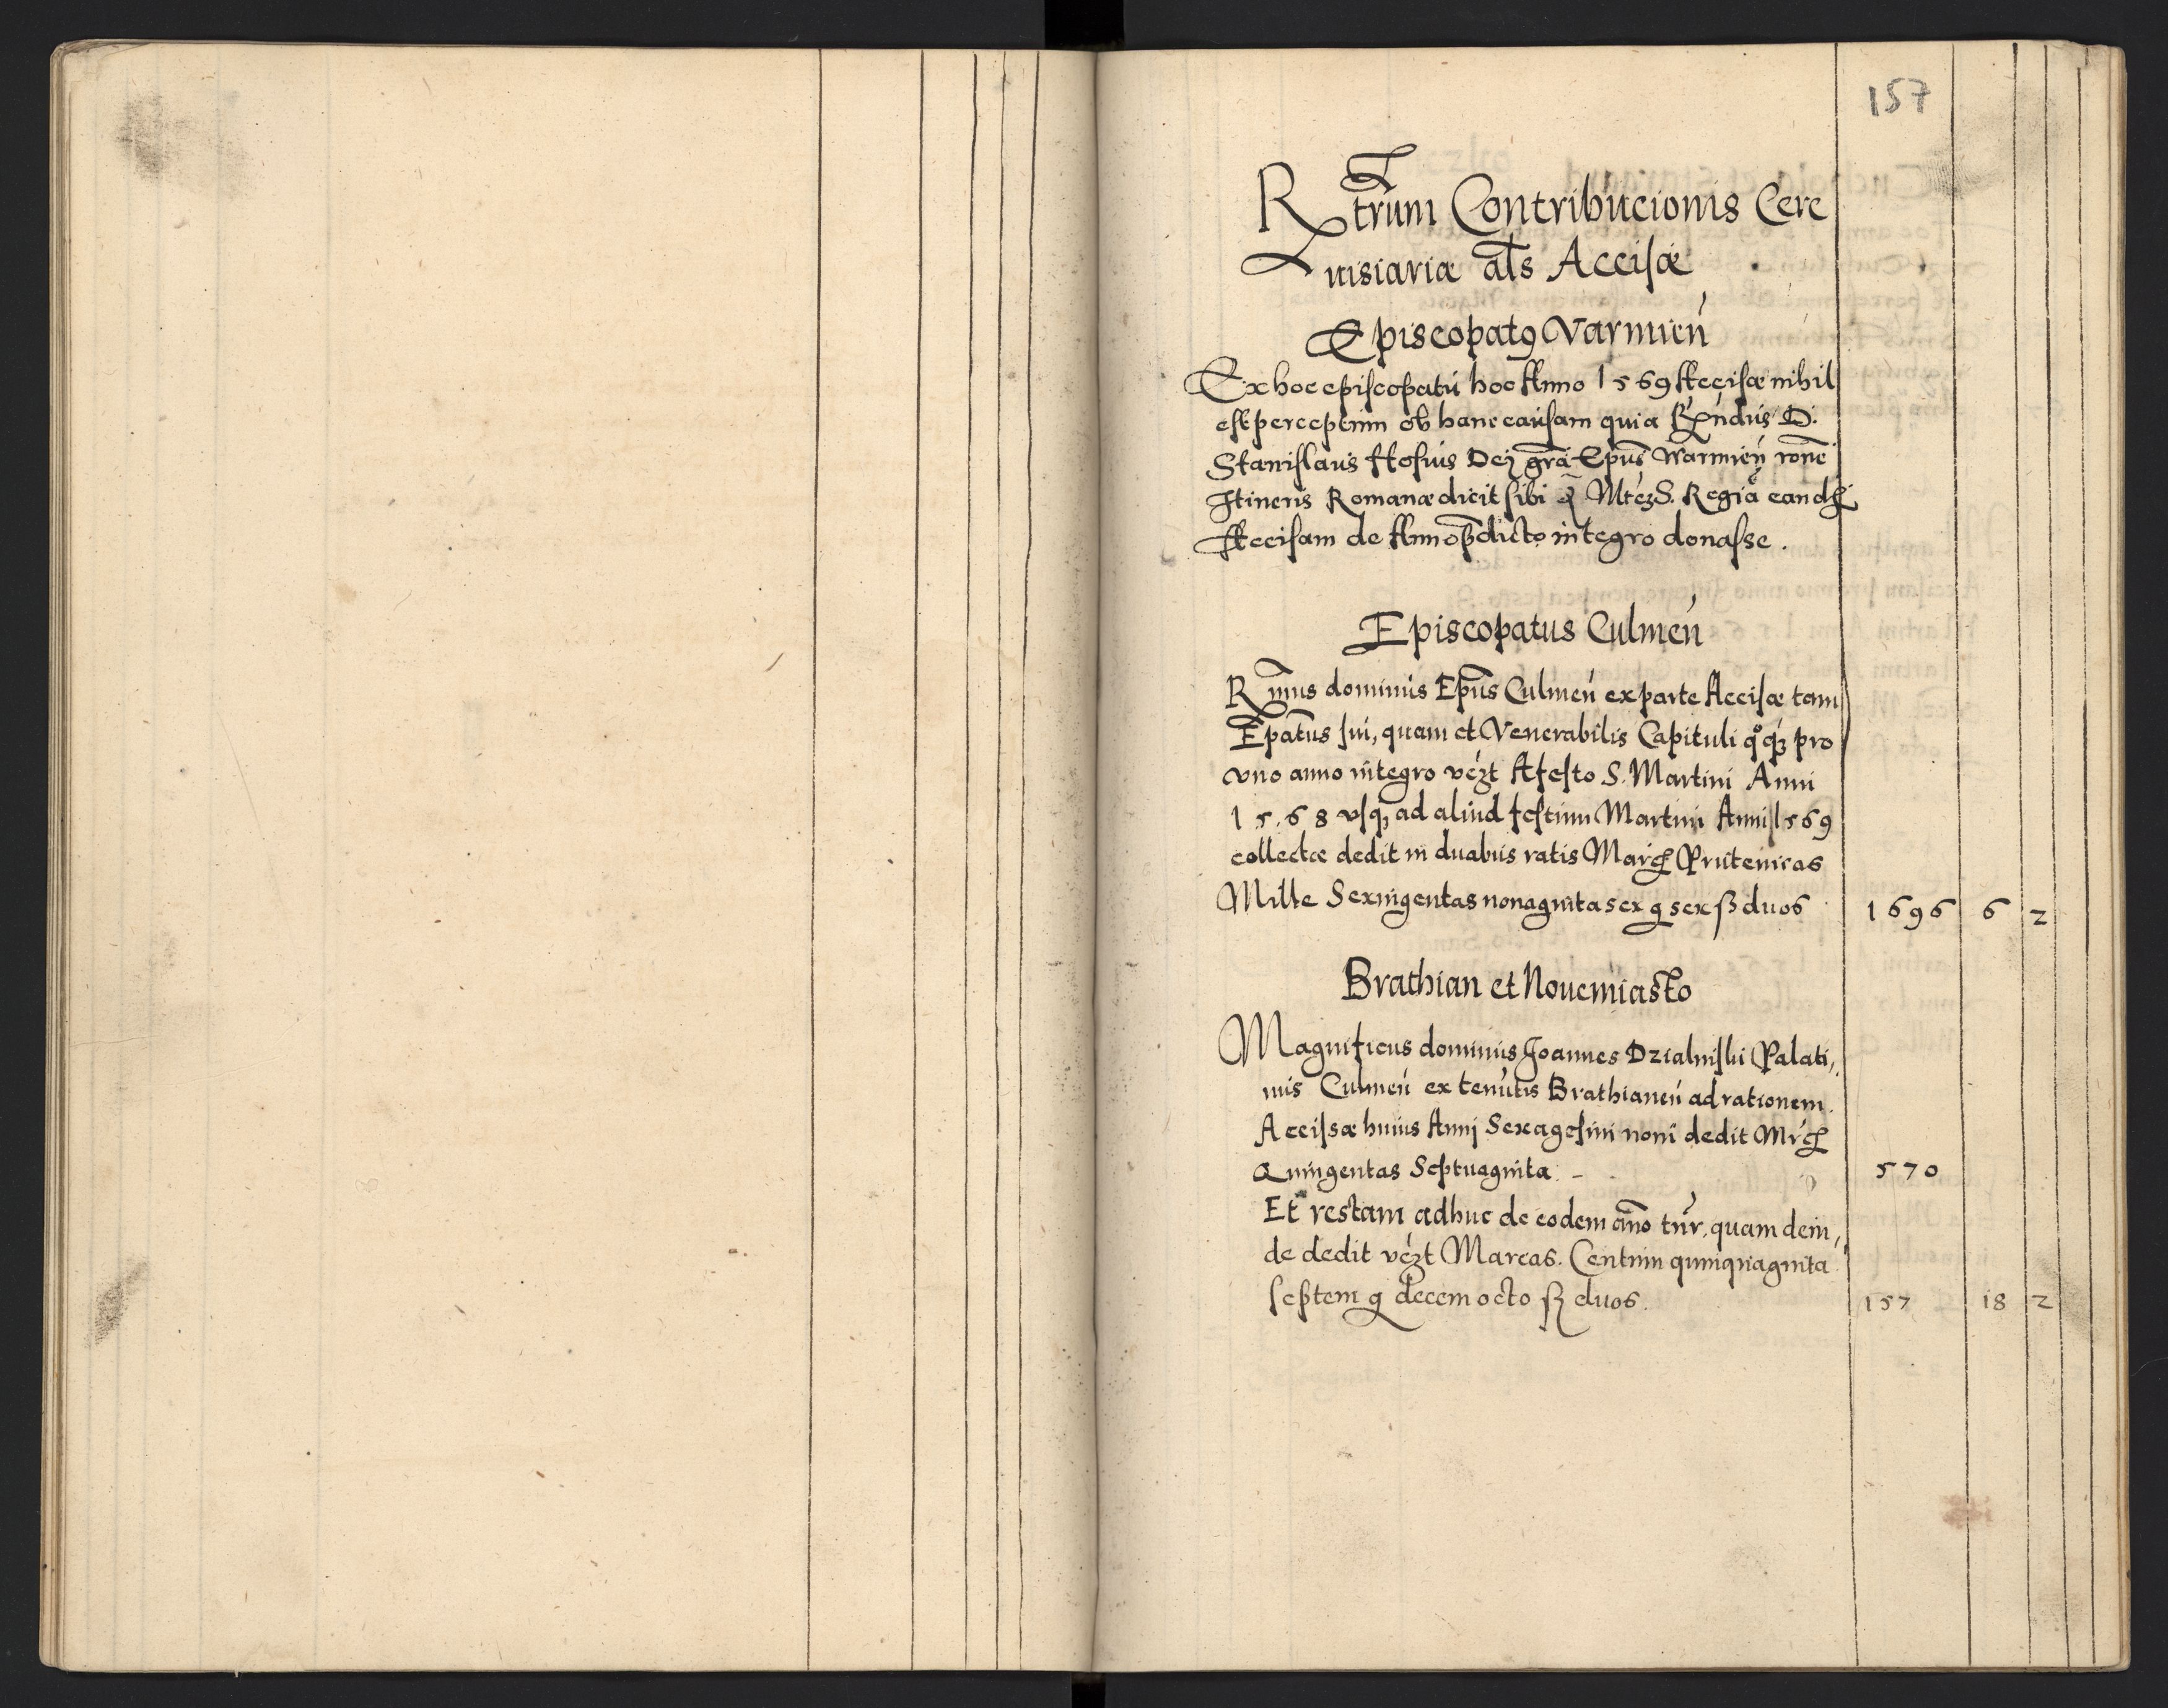 157
Rtrum Contribucionis Cere
uisiariæ als Accisæ
Episcopatꝯ Varmień
Ex hoc episcopatu hoc Anno 1569 Accisæ nihil
est perceptum ob hanc causam quia Rndus D:
Stanislaus Hosius Dei gra Epus Warmień rone
Itineris Romanæ dicit sibi Mtez S. Regia eand
Accisam de Anno pdicto integro donasse.
Episcopatus Culmeń
Rmus dominus Epus Culmeń ex parte Accisæ tam
Epatus sui, quam et Venerabilis Capituli qoq3 pro
vno anno integro vézt A festo S. Martini Anni
1568 vsq3 ad aliud festum Martini Anni 1569
collectæ dedit in duabus ratis March Prutenicas
Mille Sexingentas nonaginta sex g sex ß duos 1696 6 2
Brathian et Nouemiasto
Magnificus dominus Joannes Dzialinski Palati,
nus Culmeń ex tenutis Brathianeń ad rationem
Accissæ huius Anni Sexagesimi noni dedit Mrch
Quingentas Septuaginta. – 570
Et restam adhuc de eodem ano tnr. quam dein,
de dedit vézt Marcas. Centum quinquaginta
septem g decem octo ß duos. 157 18 2